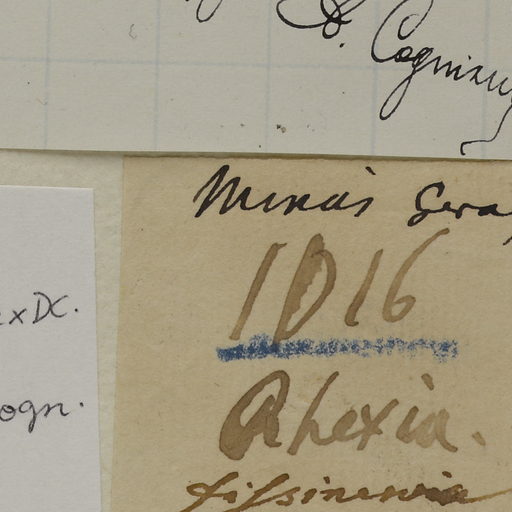 A. Cogniaux
x DC.
ogn.
Minas Gera
1016
Rhexia.